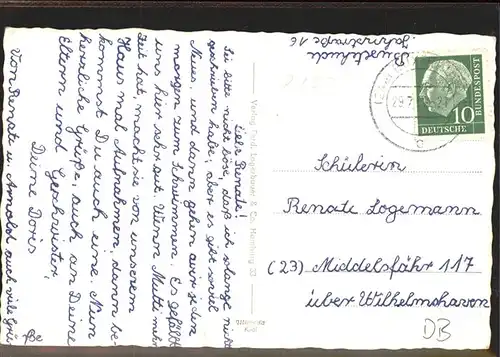 Liebe Renate!
Sei bitte nicht böse, daß ich solange nicht
geschrieben habe, aber es gibt soviel
Neues, und dann gehen wir ja jeden
morgen zum Schwimmen. Es gefällt
uns hier sehr gut. Wenn Mutti mehr
Zeit hat, macht sie von unserem
Haus mal Aufnahmen, dann be-
kommst Du auch eine. Nun
herzliche Grüße, auch an Deine
Eltern und Geschwister,
Deine Doris
Von Renate u. Arnold auch viele Grüße
Buxtehude
Jahnstraße 16
29.7.
10
DEUTSCHE
BUNDESPOST
Schülerin
Renate Logemann
(23) Middelsfähr 117
über Wilhelmshaven
DB